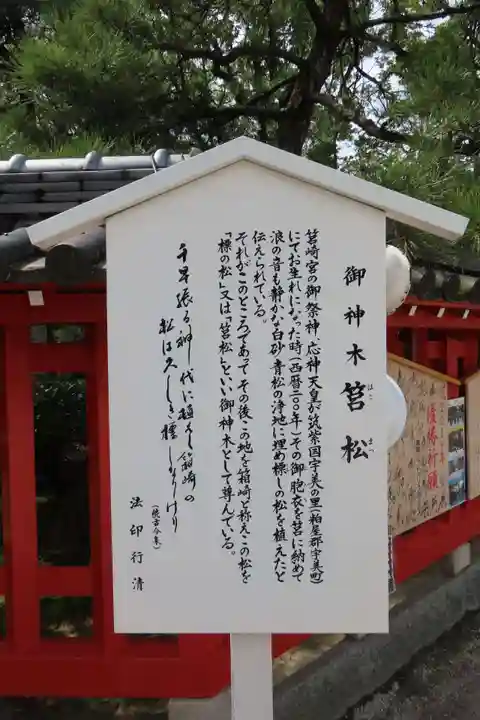 御神木 筥松
はこ まつ
筥崎宮の御祭神、応神天皇が筑紫国宇美の里(粕屋郡宇美町)
にてお生れになった時(西暦二〇〇年)その御胞衣を筥に納めて
浪の音も静かな白砂青松の浄地に埋め標しの松を植えたと
伝えられている。
それがこのところであって その後、この地を箱崎と称え、この松を
「標の松」又は「筥松」といい、御神木として尊んでいる。
千早振る神代に植えし箱崎の
松は久しき標しなりけり
(続古今集)
法印行清
復縁祈願